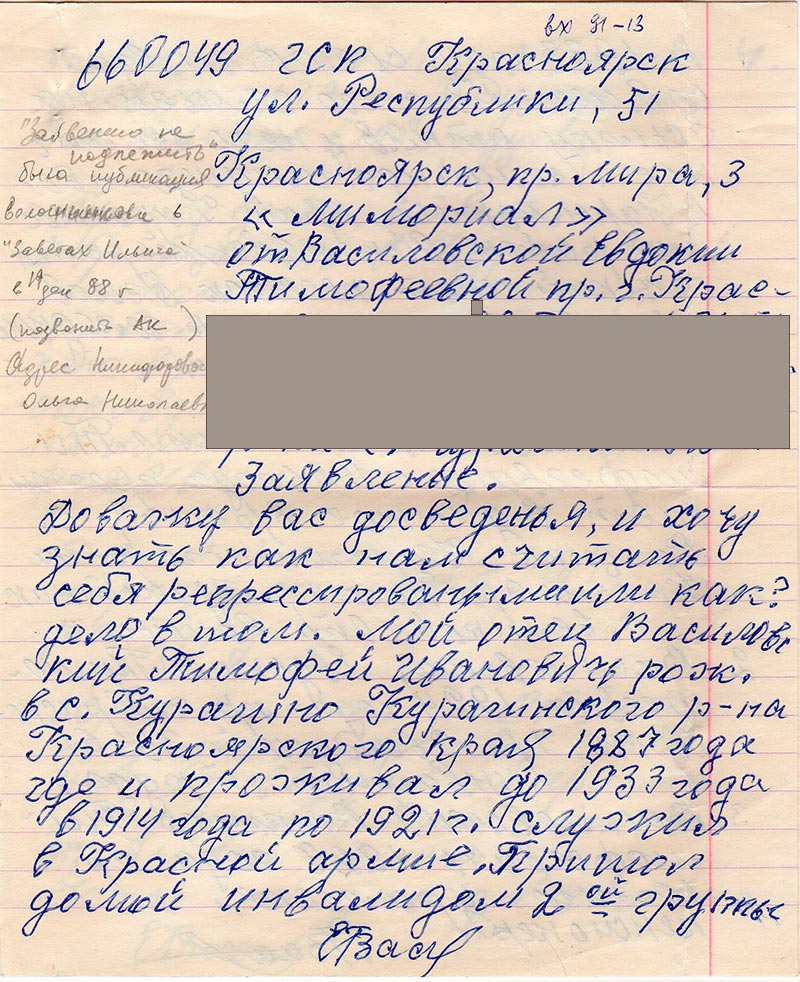 вх 91-13
660049 гСК Красноярск
ул. Республики, 51
Красноярск, пр. Мира, 3
«Мимориал»
от Василовской Евдокии
Тимофеевной пр. г. Крас-
"Забвению не
подлежить"
была публикация
в
"Заветах Ильича"
в 14 дек 88 г
(позвонить АК)
Адрес
Ольга Николаевн
Заявление.
Доважу вас досведенья, и хочу
знать как нам считать
себя репрессироваными или как?
дело в том. Мой отец Василовс
кий Тимофей Ивановичь рож.
в с. Курагино Курагинского р-на
Красноярского края 1887 года
где и проживал до 1933 года
в 1914 года по 1921 г. служил
в Красной армие. Пришол
домой инвалидом 2 ой группы
ЕВас